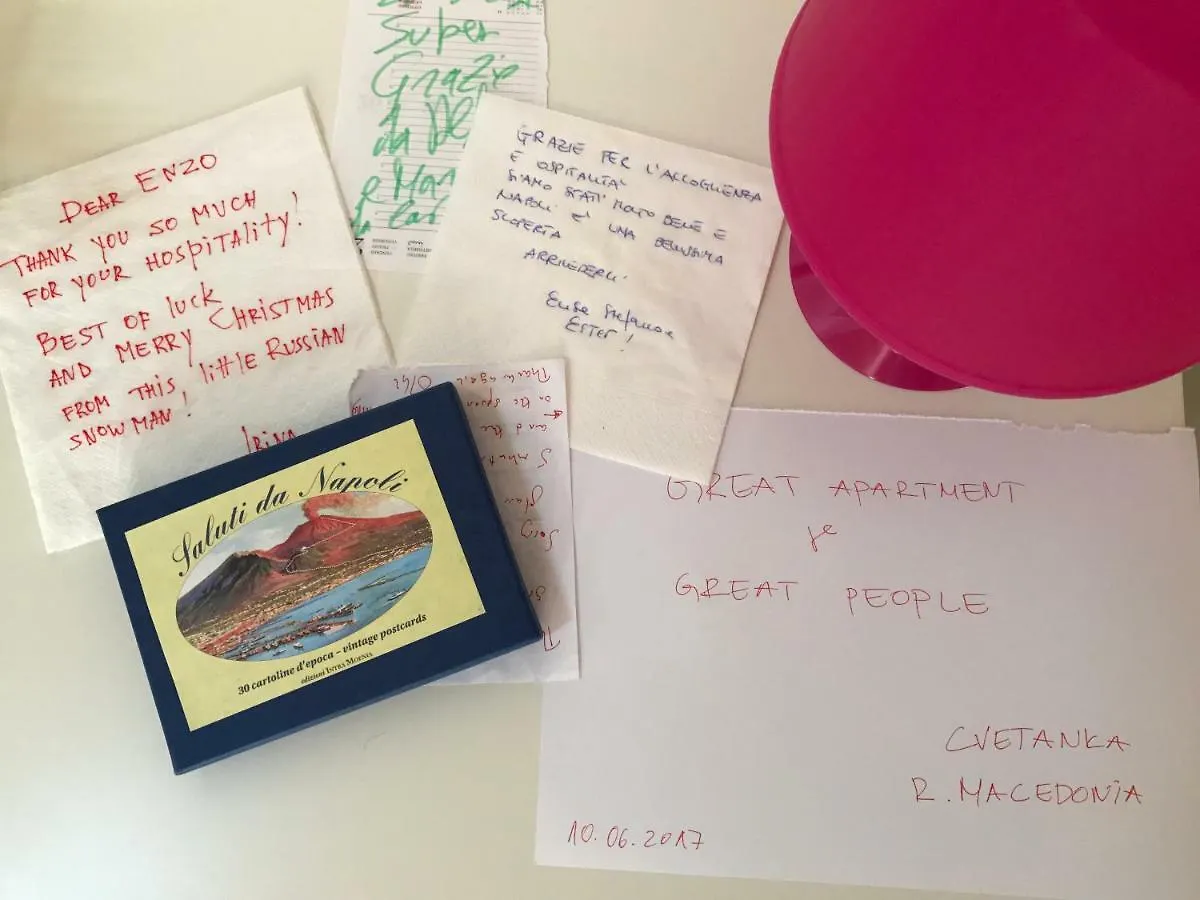 Super
Grazie
DEAR ENZO
THANK YOU SO MUCH
FOR YOUR HOSPITALITY!
BEST OF luck
AND MERRY CHRISTMAS
FROM THIS little RUSSIAN
SNOWMAN!
IRINA
GRAZIE PER L'ACCOGLIENZA
E OSPITALITA'
SIAMO STATI MOLTO BENE E
NAPOLI E' UNA BELLISSIMA
SCOPERTA
ARRIVEDERCI.
ESTER!
Thank
on the
and the
5 minutes
Sorry
Saluti da Napoli
30 cartoline d'epoca – vintage postcards
edizioni INTRA MOENIA
GREAT APARTMENT
GREAT PEOPLE
CVETANKA
R. MACEDONIA
10.06.2017